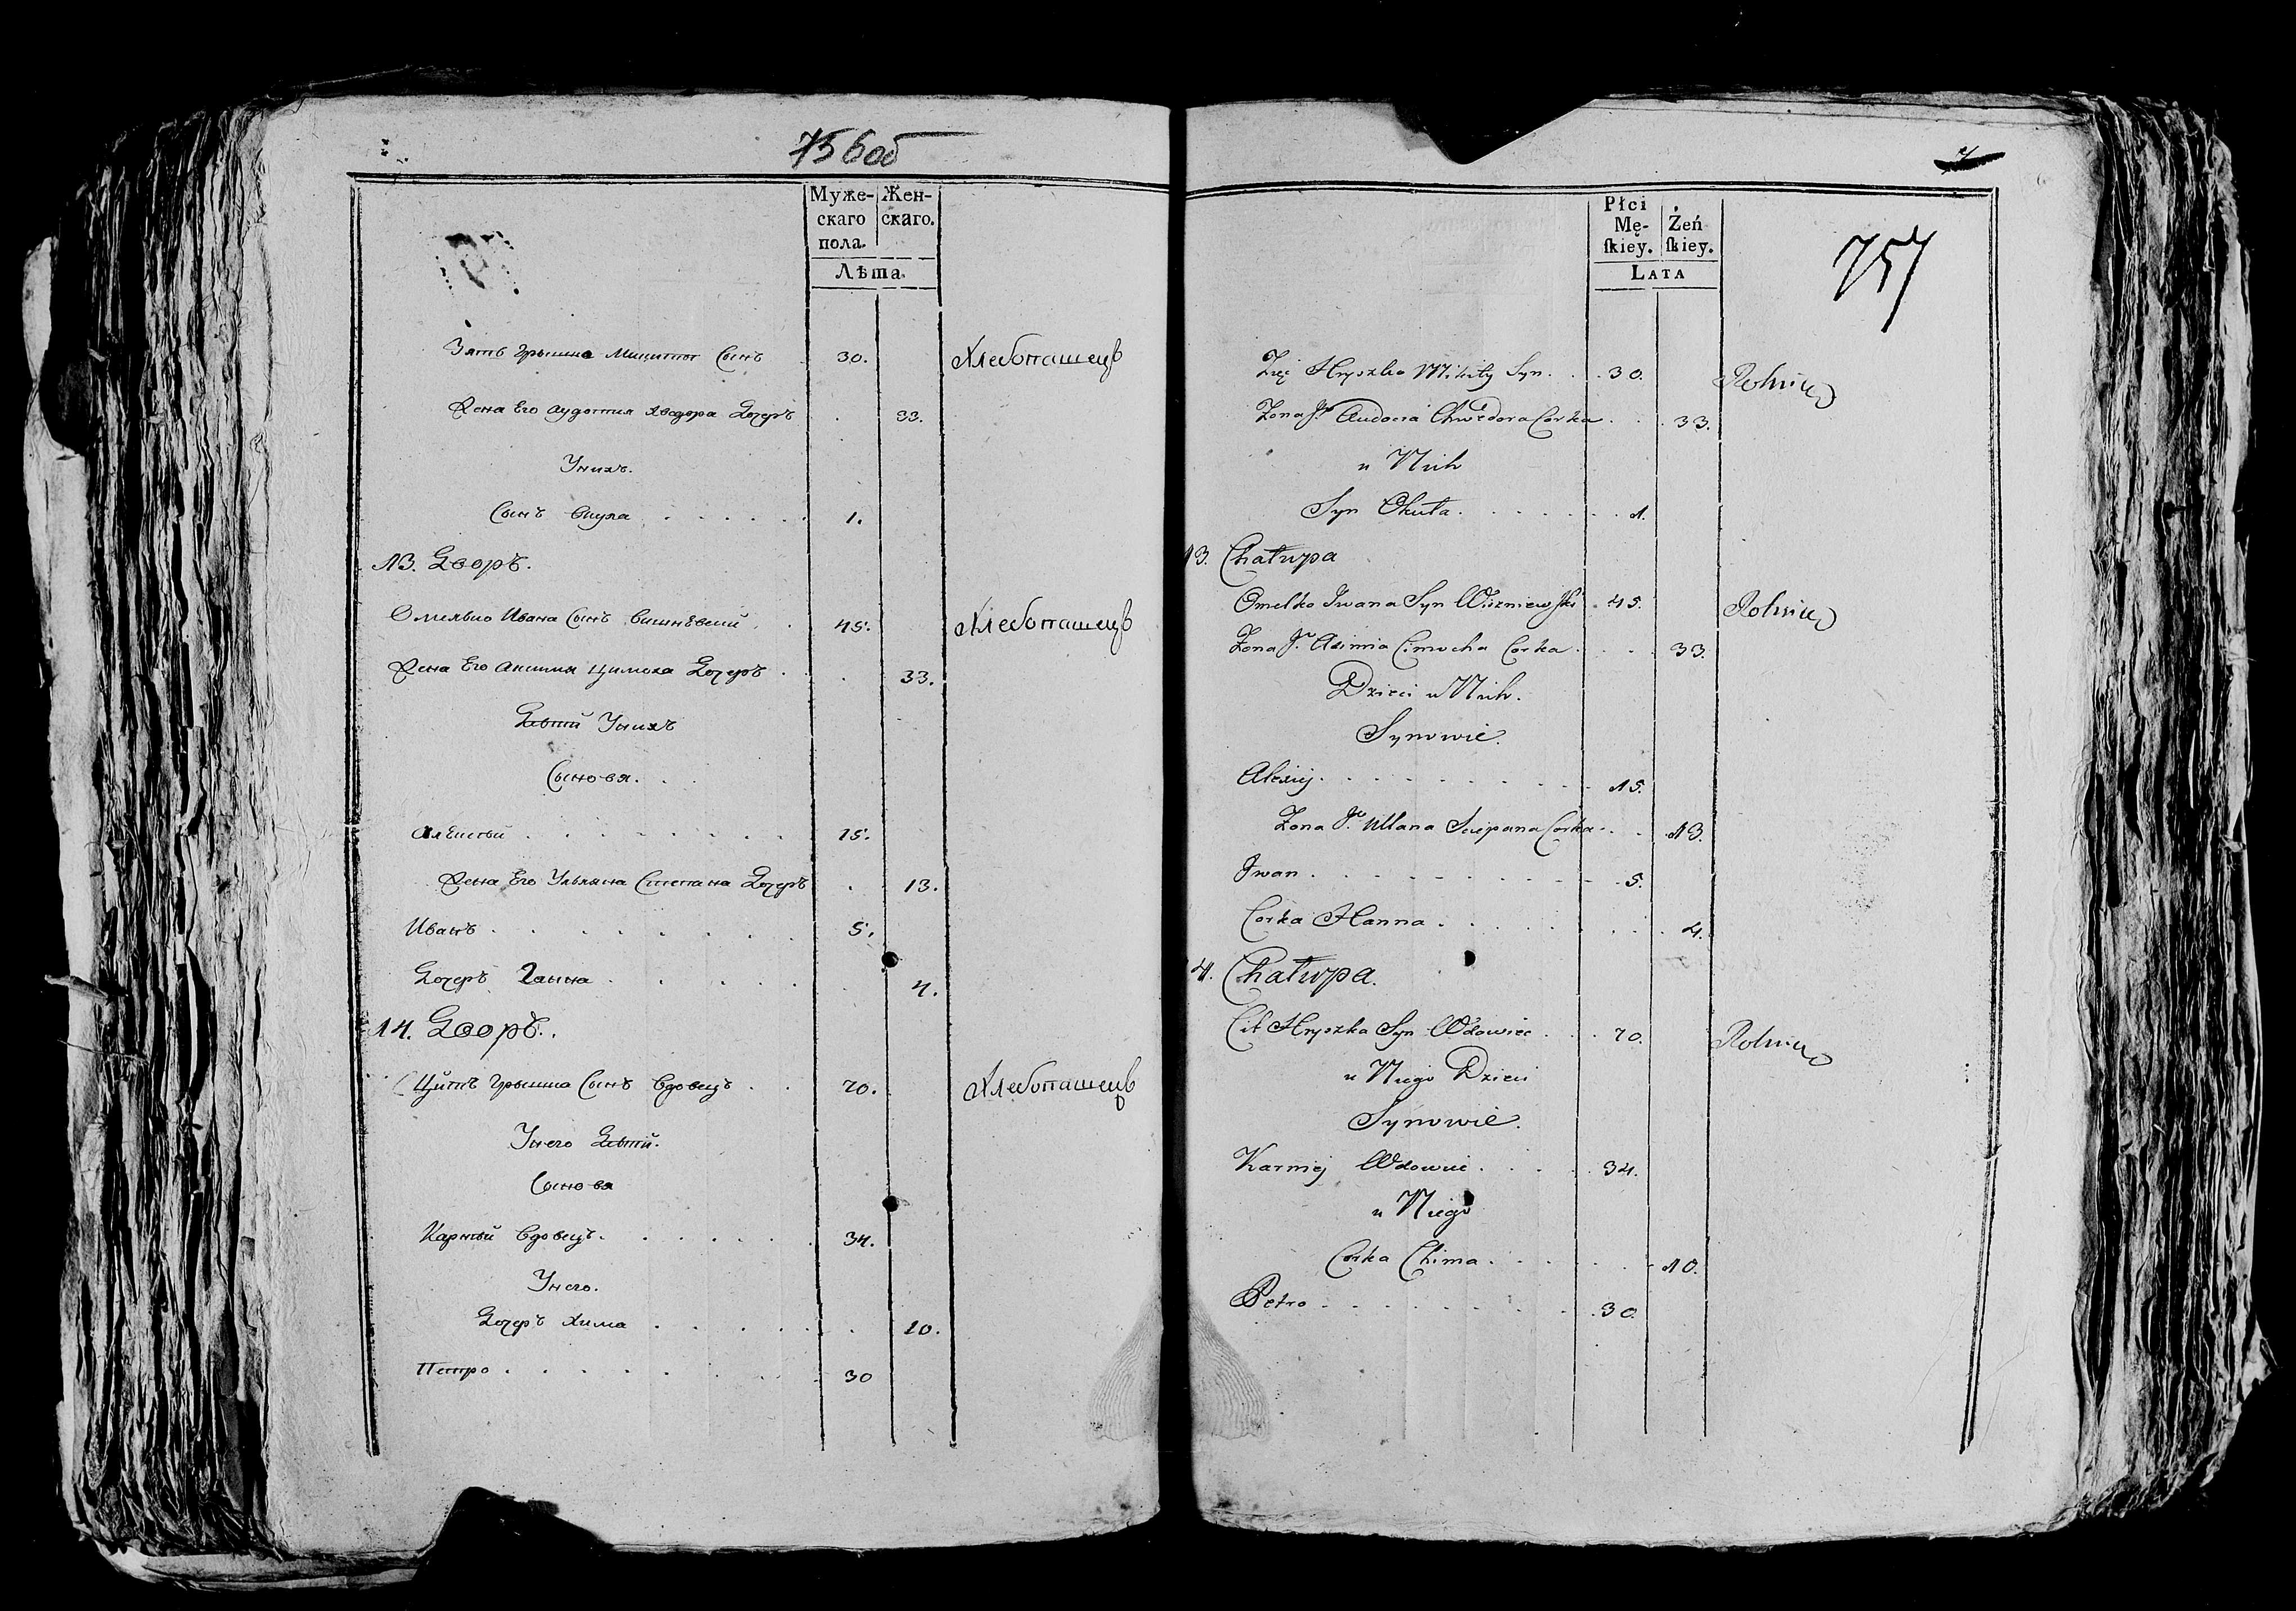 756об
Муже-
скаго
пола.
Жен-
скаго.
Лѣта.
Зять Грышка Микиты Сынъ 30. Хлебопашецъ
Жена Его Аудотия Хведора Дочерь 33.
Унихъ.
Сынъ Окула 1.
13. Дворъ.
Омелько Ивана Сынъ Вишнѣвский 45. Хлебопашецъ
Жена Его Аксимия Цимоха Дочерь 33.
Дѣтий Унихъ
Сыновя.
Алѣксѣй 15.
Жена Его Ульляна Степана Дочерь 13.
Иванъ 5.
Дочерь Ганна 4.
14. Дворъ.
Цитъ Грышка Сынъ Вдовецъ 70. Хлебопашецъ
Унего Дѣтий.
Сыновя
Карнѣй Вдовецъ. 34.
Унего.
Дочерь Хима 10.
Петро 30
7
757
Płci
Mę-
ſkiey.
Żeń
ſkiey.
LATA
Zięć Hryszko Mikity Syn 30. Rolnik
Zona Jo Audocia Chwedora Corka 33.
u Nich
Syn Okuła 1.
13. Chałupa
Omelko Jwana Syn Wiszniewski 45. Rolnik
Zona Jo Aximia Cimocha Corka 33.
Dzieci u Nich.
Synowie.
Alexiej 15.
Zona Jo Ullana Sciepana Corka 13.
Jwan 5.
Corka Hanna 4.
4. Chałupa.
Cit Hryszka Syn Wdowiec 70. Rolnik
u Niego Dzieci
Synowie.
Karniej Wdowiec 34.
u Niego
Corka Chima 10.
Petro 30.